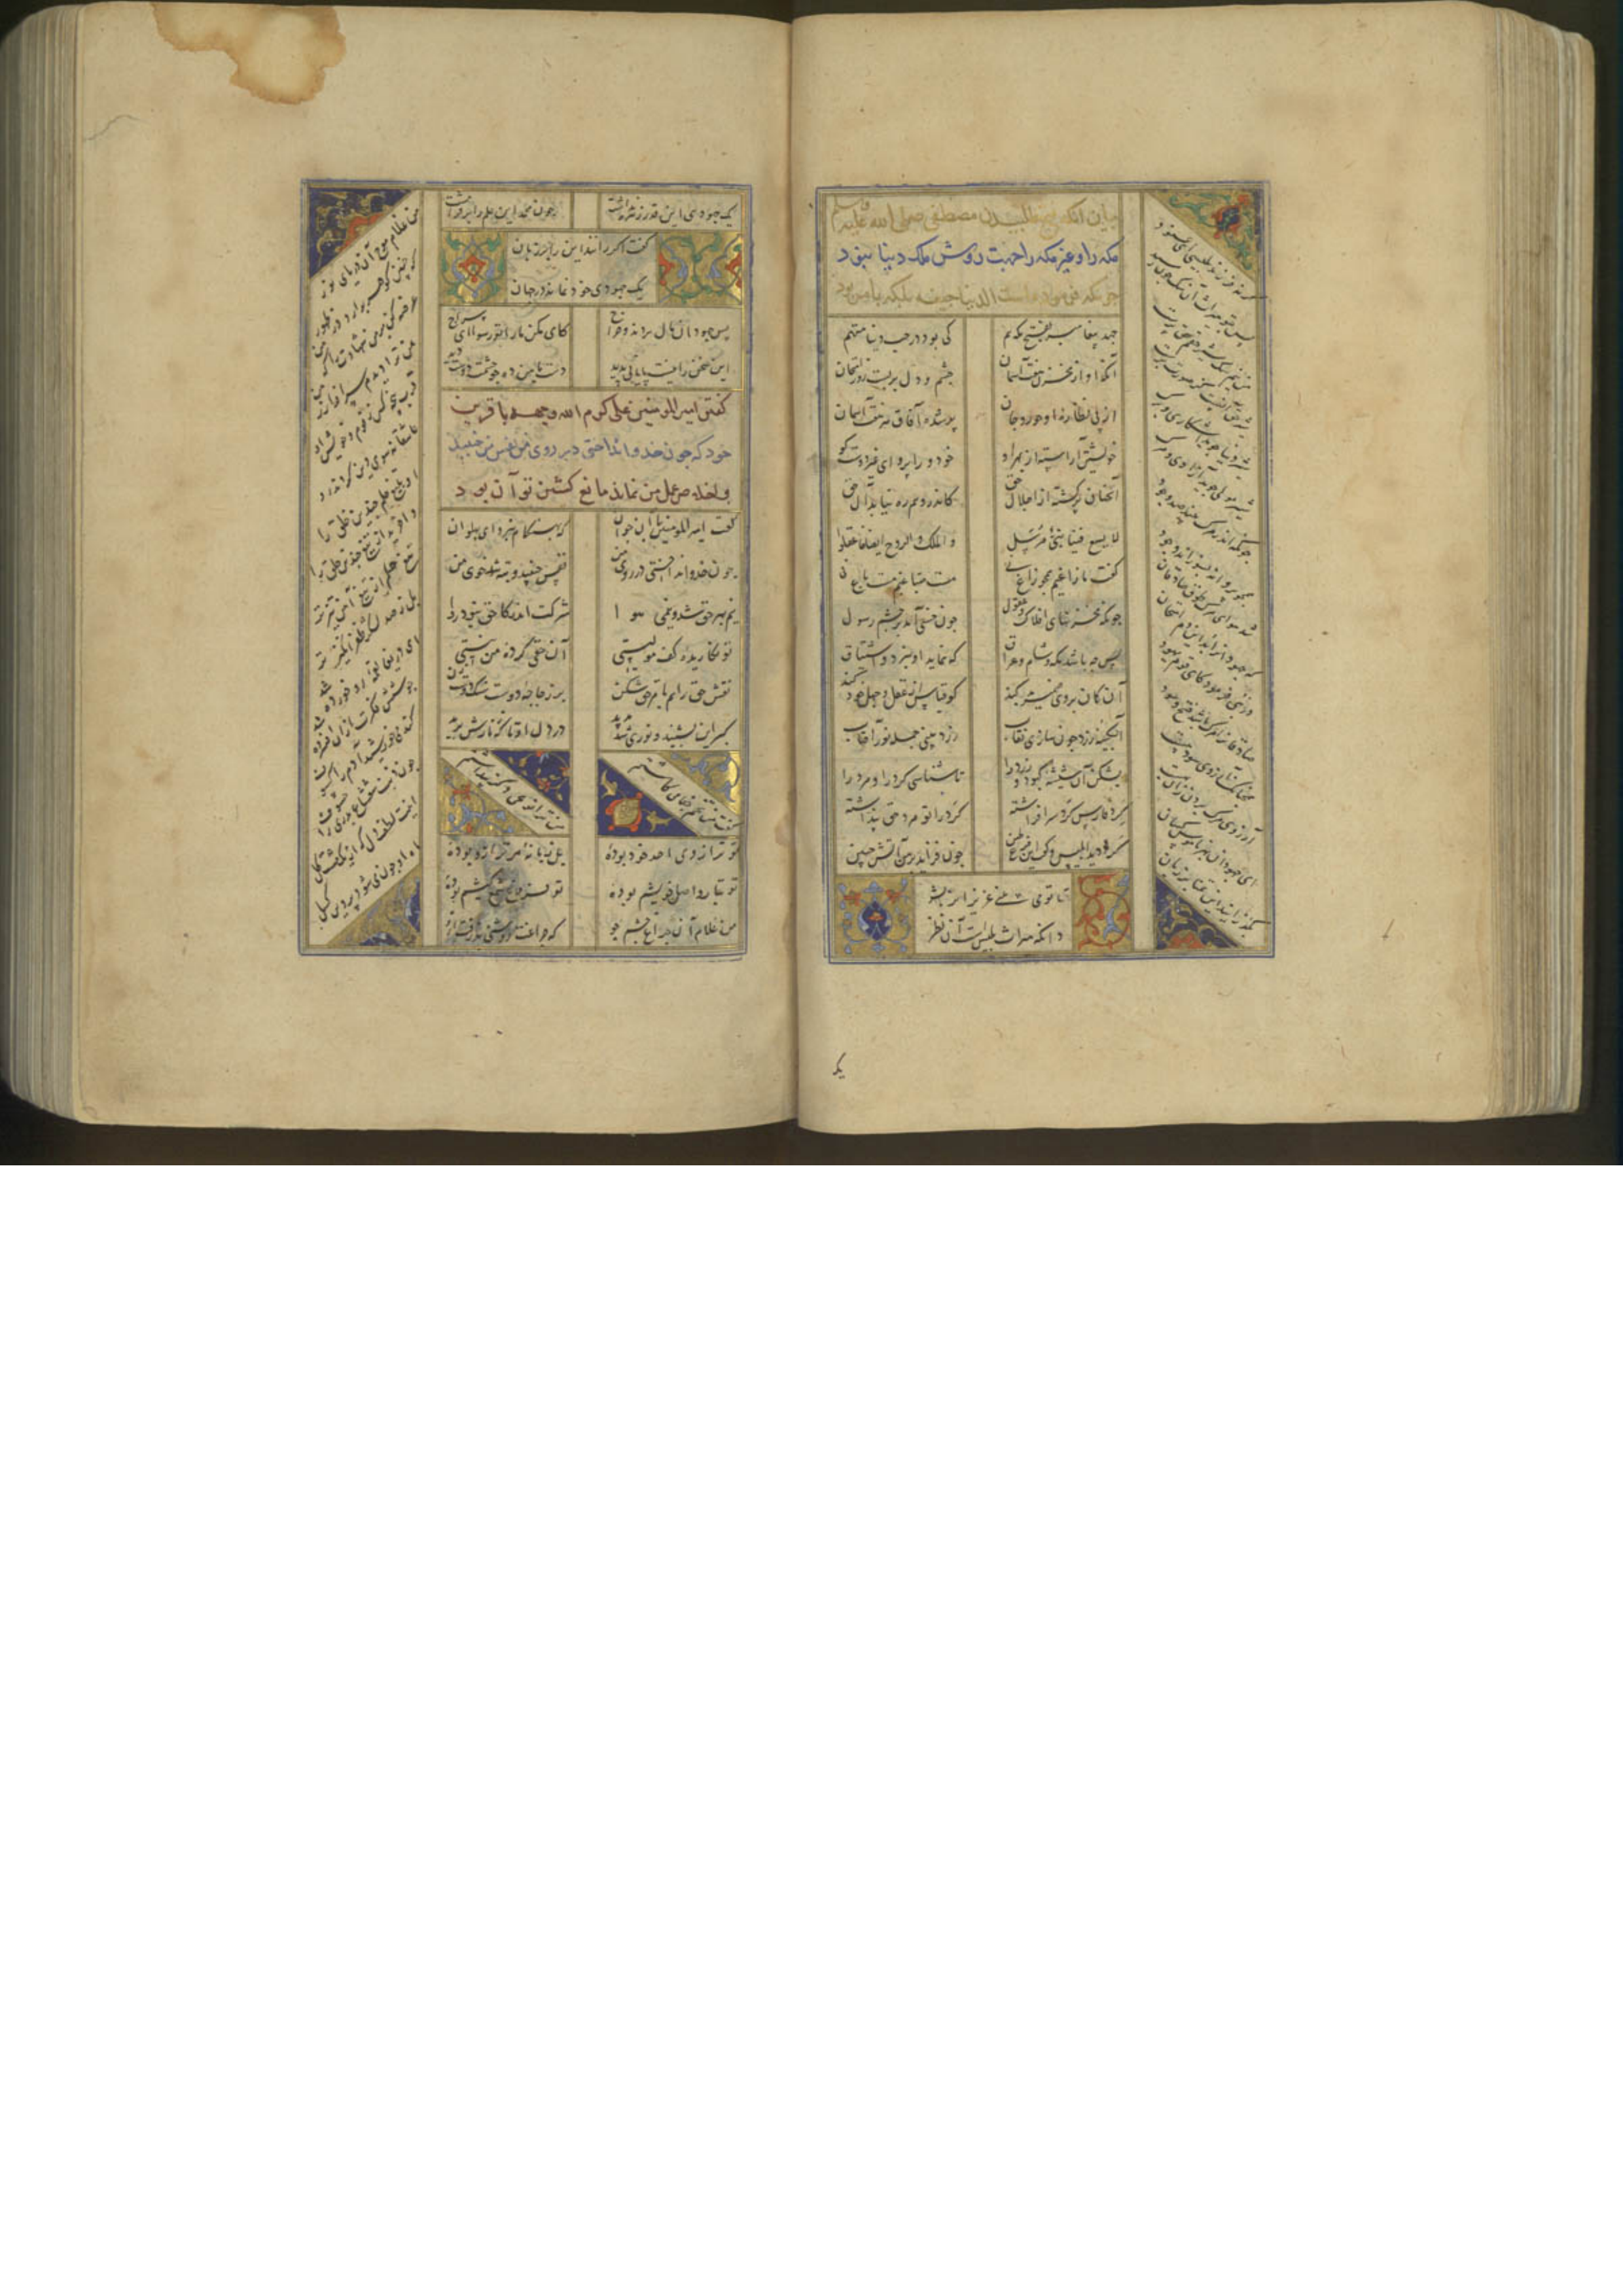 بیان انکه فتح طلبیدن مصطفی صلی الله علیه وسلم
مکه را و غیر مکه را جهت دوستی ملک دنیا نبود
چونکه فرموده است الدنیا جیفه بلکه بامر بود
جهد پیغامبر بفتح مکه هم کی بود در حب دنیا متهم
آنکه او از مخزن هفت آسمان چشم و دل بربست روز امتحان
از پی نظاره او حور و جان پر شده آفاق هر هفت آسمان
خویشتن آراسته از بهر او خود ورا پروای غیر دوست کو
آنچنان پر گشته از اجلال حق که اندرو هم ره نیابد آل حق
لا یسع فینا نبی مرسل و الملک و الروح ایضا فاعقلوا
گفت ما زاغیم همچو زاغ نی مست صباغیم مست باغ نی
چونکه مخزنهای افلاک و عقول چون خسی آمد بر چشم رسول
پس چه باشد مکه و شام و عراق که نماید او نبرد و اشتیاق
آن گمان بر وی ضمیر بد کند کو قیاس از عقل و جهل خود کند
آبگینه زرد چون سازی نقاب زرد بینی جمله نور آفتاب
بشکن آن شیشه کبود و زرد را تا شناسی گرد را و مرد را
گرد فارس گرد سر افراشته گرد را تو مرد حق پنداشته
گرد دید ابلیس و گفت این فرع طین چون فزاید بر من آتش جبین
تا تو می بینی عزیزان را بشر
دانکه میراث بلیس است آن نظر
گر نه فرزند بلیسی ای عنید
پس بتو میراث آن سگ چون رسید
من نیم سگ شیر حقم حق پرست
شیر حق آنست کز صورت برست
شیر دنیا جوید اشکاری و برگ
شیر مولی جوید آزادی و مرگ
چونکه اندر مرگ بیند صد وجود
همچو پروانه بسوزاند وجود
شد هوای مرگ طوق صادقان
که جهودانرا بد این دم امتحان
در نبی فرمود کای قوم یهود
صادقانرا مرگ باشد فتح و سود
همچنانکه آرزوی سود هست
آرزوی مرگ بردن زان بهست
ای جهودان بهر ناموس کسان
بگذرانید این تمنا بر زبان
یک
یک جهودی این قدر زهره نداشت چون محمد این علم را بر فراشت
گفت اگر رانند این را بر زبان
یک جهودی خود نماند در جهان
پس جهودان مال بردند و خراج کای مکن ما را تو رسوا ای سراج
این سخن را نیست پایانی پدید دست با من ده چو چشمت دوست دید
گفتن امیر المومنین علی کرم الله وجهه با قرین
خود که چون خدو انداختی در روی من نفس من جنبید
و اخلاص عمل من نماند مانع کشتن تو آن بود
گفت امیر المومنین با آن جوان که بهنگام نبرد ای پهلوان
چون خدو انداختی در روی من نفس جنبید و تبه شد خوی من
نیم بهر حق شد و نیمی هوا شرکت اندر کار حق نبود روا
تو نگاریده کف مولیستی آن حقی کرده من نیستی
نقش حق را هم بامر حق شکن بر زجاجه دوست سنگ دوست زن
گبر این بشنید و نوری شد پدید در دل او تا که زنارش برید
گفت من تخم جفا می کاشتم من ترا نوعی دگر پنداشتم
تو ترازوی احد خو بوده بل زبانه هر ترازو بوده
تو تبار و اصل و خویشم بوده تو فروغ شمع کیشم بوده
من غلام آن چراغ چشم جو که چراغت روشنی پذرفت ازو
من غلام موج آن دریای نور
که چنین گوهر بر آرد در ظهور
عرضه کن بر من شهادت را که من
من ترا دیدم سرافراز زمن
قرب پنجه کس ز قوم و خویش او
عاشقانه سوی دین کردند رو
او بتیغ حلم چندین خلق را
وا خرید از تیغ چندین حلق را
تیغ حلم از تیغ آهن تیزتر
بل ز صد لشکر ظفر انگیزتر
ای دریغا لقمه دو خورده شد
جوشش فکرت از آن افسرده شد
گندمی خورشید آدم را کسوف
چون ذنب شعشاع بدری را خسوف
اینت لطف دل که از یک مشت گل
ماه او چون می شود پروین گسل